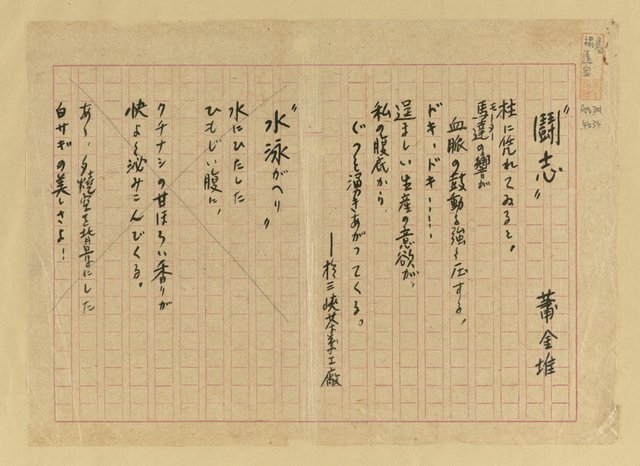 〝闘志〟
蕭金堆
柱に凭れてゐると、
馬達の響が
モーター
血脈の鼓動を強く圧する、
ドキー、ドキー……
逞ましい生産の意欲が、
私の腹底から、
ぐっと湧きあがってくる。
——於三峡茶業工廠
〝水泳がへり〟
水にひたした
ひもじい腹に、
クチナシの甘ほろい香りが
快よく泌みこんでくる。
あゝ、夕焼空を背景にした
白サギの美しさよ!